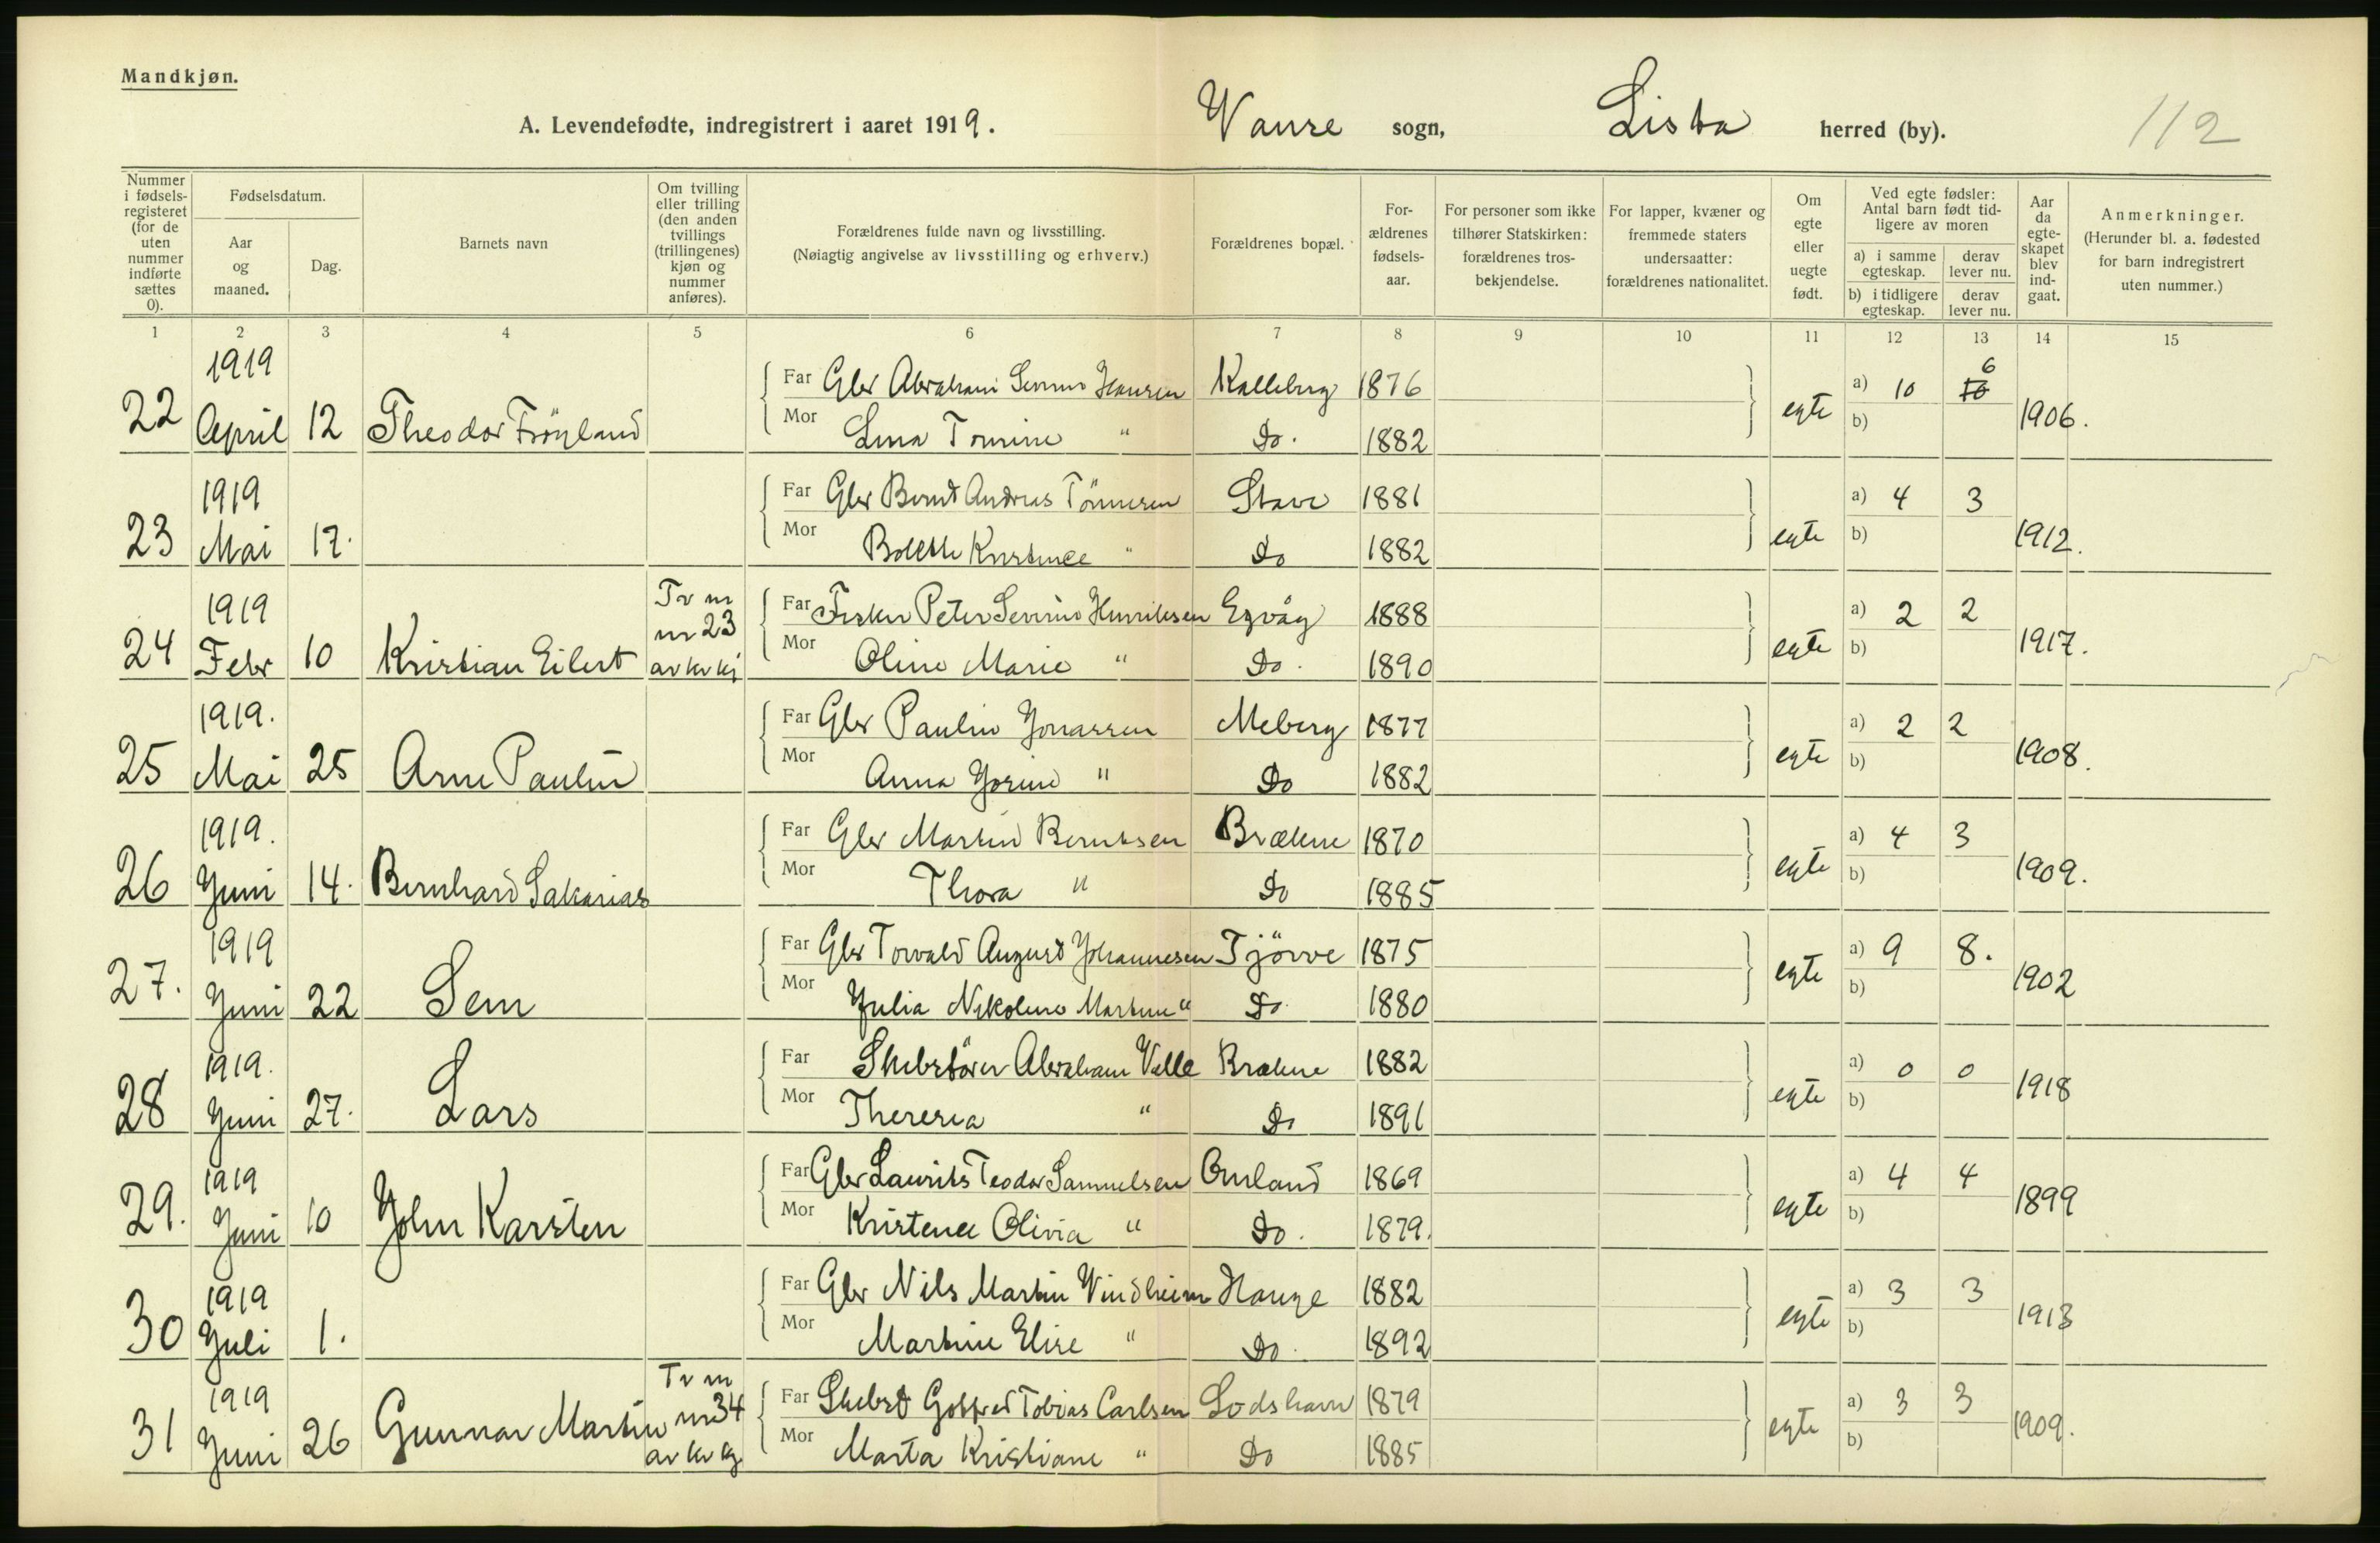 Mandkjøn.
A. Levendefødte, indregistrert i aaret 1919. Vanse sogn, Lista herred (by). 112
Nummer i fødsels-registeret (for de uten nummer indførte sættes 0).
Fødselsdatum.
Aar og maaned.
Dag.
Barnets navn
Om tvilling eller trilling (den anden tvillings (trillingenes) kjøn og nummer anføres).
Forældrenes fulde navn og livsstilling.
(Nøiagtig angivelse av livsstilling og erhverv.)
Forældrenes bopæl.
For-ældrenes fødsels-aar.
For personer som ikke tilhører Statskirken: forældrenes tros-bekjendelse.
For lapper, kvæner og fremmede staters undersaatter: forældrenes nationalitet.
Om egte eller uegte født.
Ved egte fødsler: Antal barn født tid-ligere av moren
a) i samme egteskap. derav lever nu.
b) i tidligere egteskap. derav lever nu.
Aar da egte-skapet blev ind-gaat.
Anmerkninger.
(Herunder bl. a. fødested for barn indregistrert uten nummer.)
1 2 3 4 5 6 7 8 9 10 11 12 13 14 15
1919 Far Gbr Abraham Severin Hansen Kalleberg 1876 a) 10 6 10
22 April 12 Theodor Frøyland Mor Lina Tomine " Do. 1882 egte b) 1906.
1919 Far Gbr Bernt Andreas Tönnesen Stave 1881 a) 4 3
23 Mai 17. Mor Bolette Kristince " Do 1882 egte b) 1912.
1919 Tv m Far Fisker Peter Severin Henriksen Egvåg 1888 a) 2 2
24 Febr 10 Kristian Eilert nr 23 av kv kj Mor Oline Marie " Do. 1890 egte b) 1917.
1919. Far Gbr Paulin Jonassen Meberg 1877 a) 2 2
25 Mai 25 Arne Paulin Mor Anna Jorine " Do 1882 egte b) 1908.
1919. Far Gbr Martin Berntsen Brækne 1870 a) 4 3
26 Juni 14. Bernhard Sakarias Mor Thora " Do 1885 egte b) 1909.
1919 Far Gbr Torvald August Johannesen Tjörve 1875 a) 9 8.
27. Juni 22 Sem Mor Julia Nikoline Martine " Do 1880 egte b) 1902
1919. Far Abraham Valle Brækne 1882 a) 0 0
28 Juni 27. Lars Mor Theresia " Do 1891 egte b) 1918
1919 Far Gbr Laurits Teodor Samuelsen Omland 1869 a) 4 4
29. Juni 10 John Karsten Mor Kristence Olivia " Do. 1879. egte b) 1899
1919 Far Gbr Nils Martin Vindheim Hauge 1882 a) 3 3
30 Juli 1. Mor Martine Elise " Do. 1892 egte b) 1913
1919 Tv m Far Skibst Gotfred Tobias Carlsen Lodshavn 1879 a) 3 3
31 Juni 26 Gunnar Martin nr 34 av kv kj Mor Marta Kristiane " Do 1885 egte b) 1909.